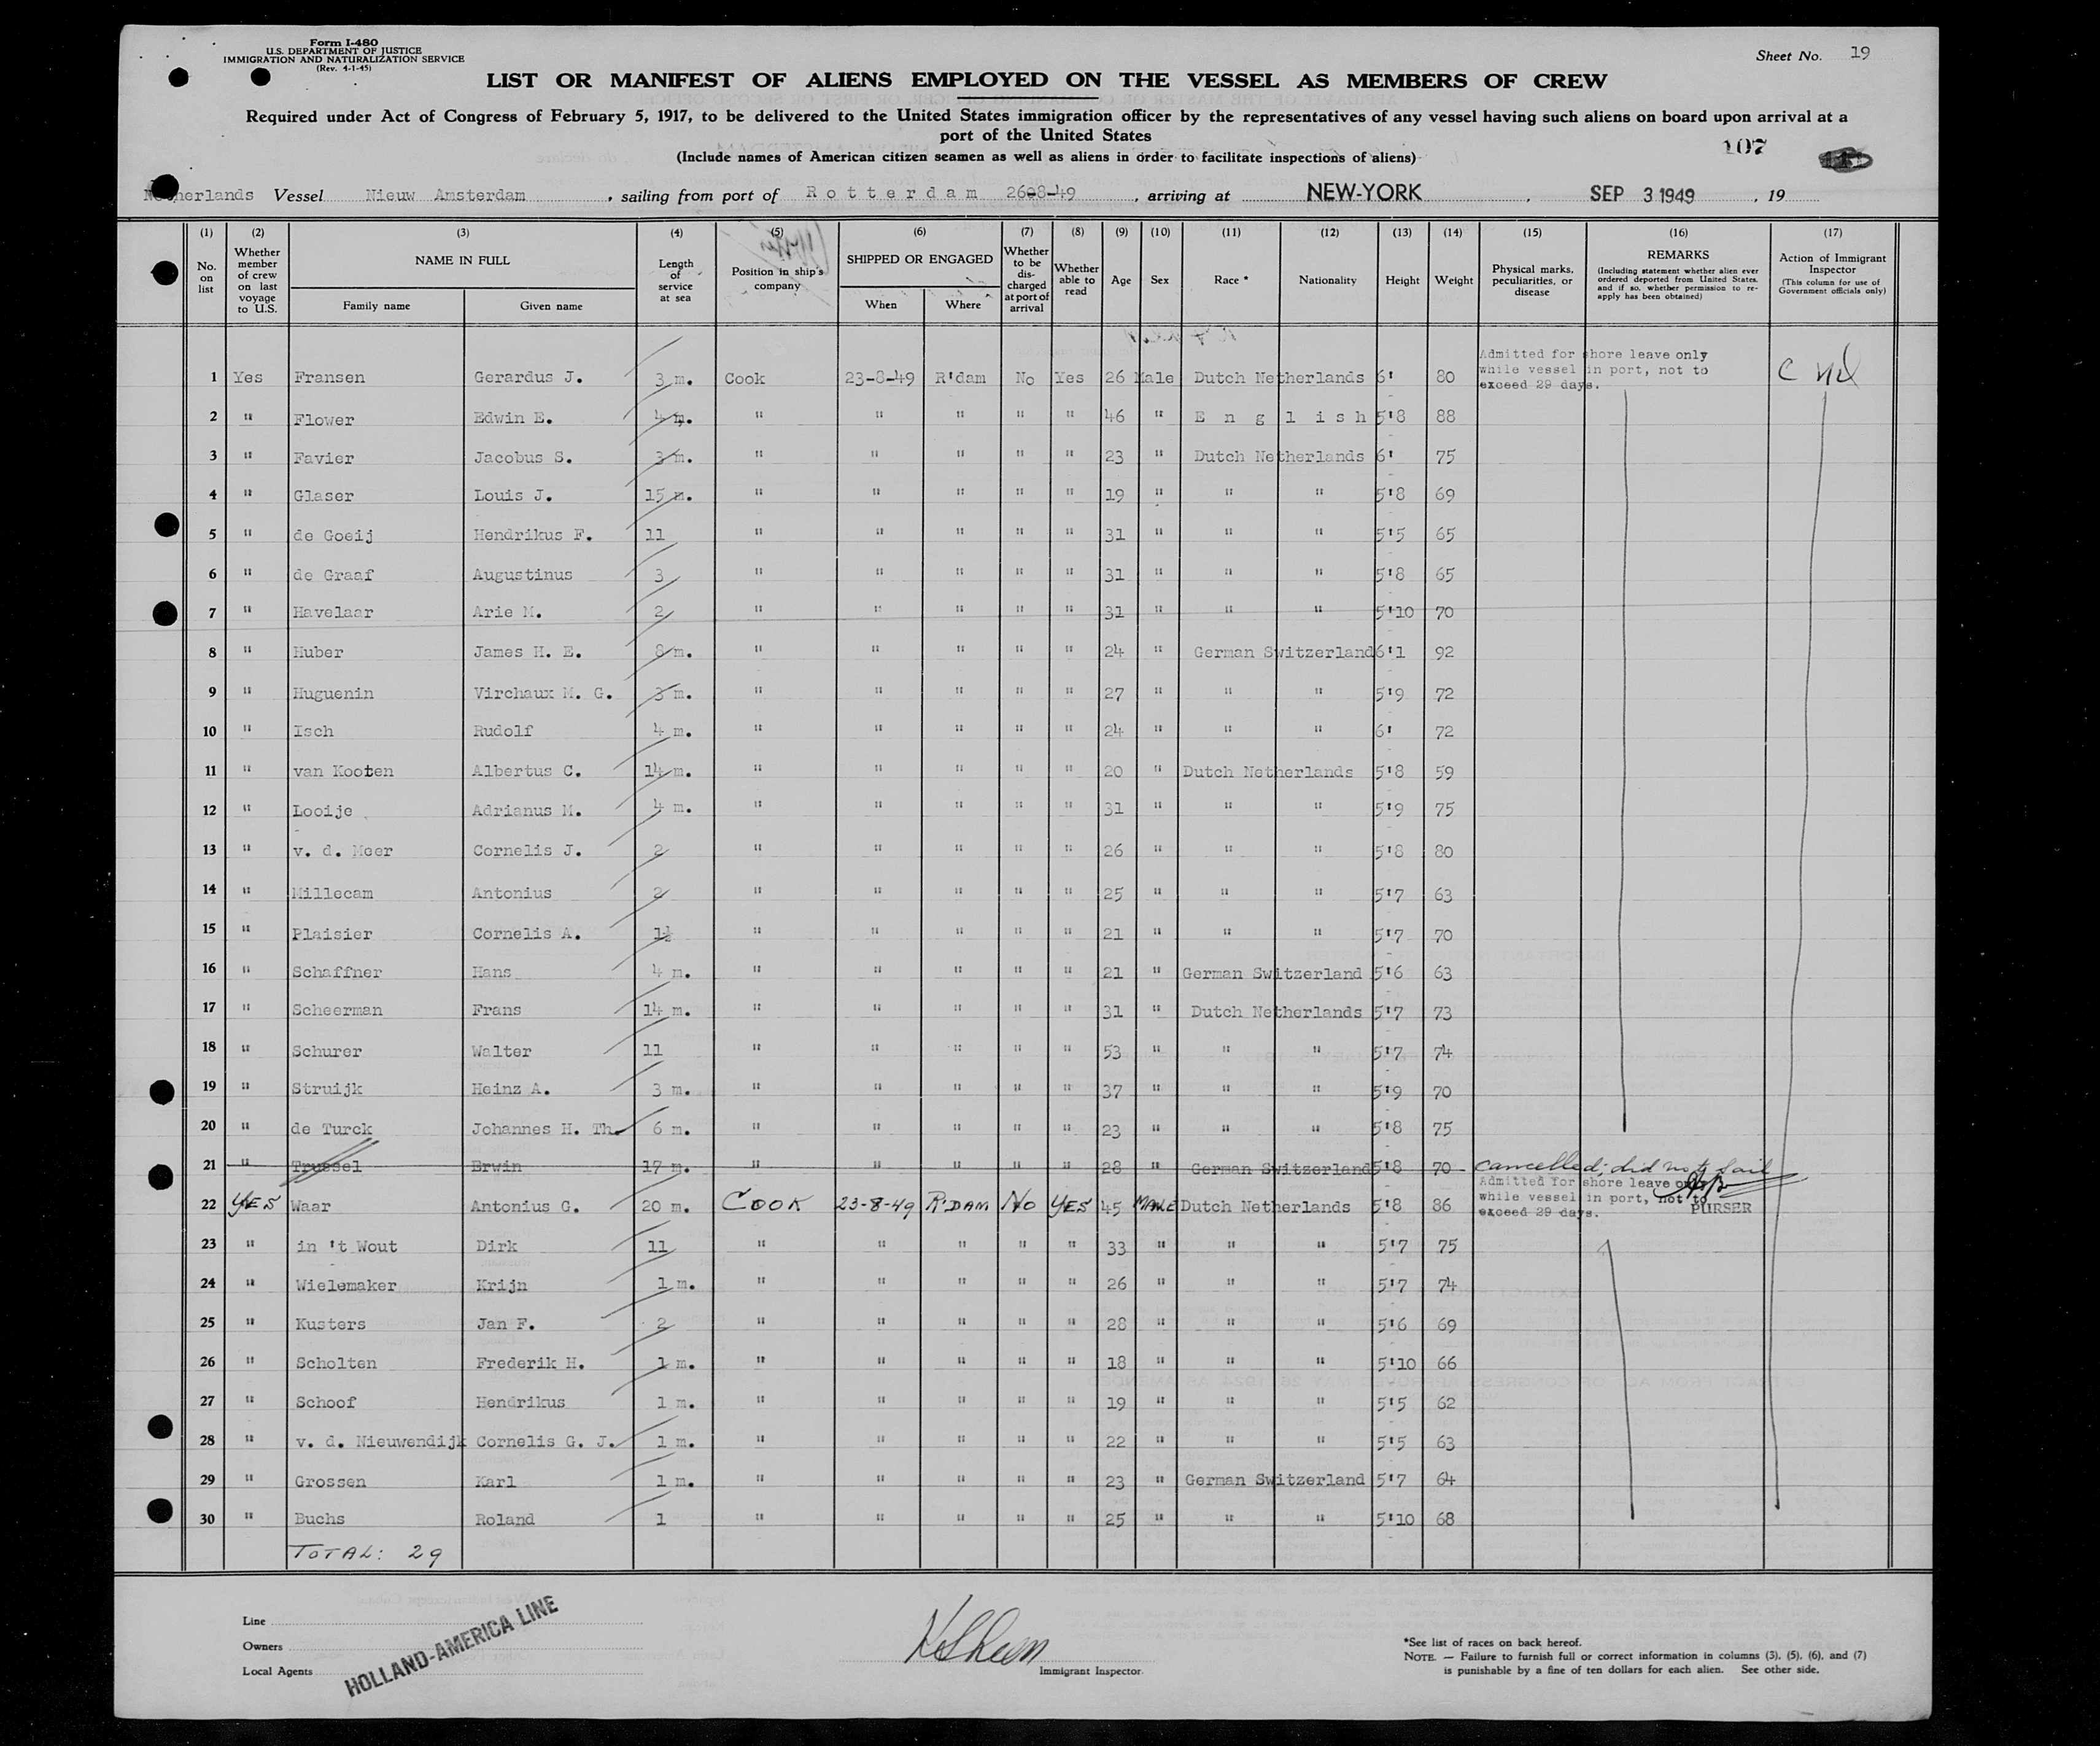 Form I-480
U.S. DEPARTMENT OF JUSTICE
IMMIGRATION AND NATURALIZATION SERVICE
(Rev. 4-1-45)
Sheet No. 19
LIST OR MANIFEST OF ALIENS EMPLOYED ON THE VESSEL AS MEMBERS OF CREW
Required under Act of Congress of February 5, 1917, to be delivered to the United States immigration officer by the representatives of any vessel having such aliens on board upon arrival at a
port of the United States
(Include names of American citizen seamen as well as aliens in order to facilitate inspections of aliens)
107
Netherlands Vessel Nieuw Amsterdam, sailing from port of Rotterdam 26-8-49, arriving at NEW-YORK, SEP 3 1949, 19
(1) (2) (3) (4) (5) (6) (7) (8) (9) (10) (11) (12) (13) (14) (15) (16) (17)
No. on list
Whether member of crew on last voyage to U.S.
NAME IN FULL
Family name
Given name
Length of service at sea
Position in ship's company
SHIPPED OR ENGAGED
When
Where
Whether to be discharged at port of arrival
Whether able to read
Age
Sex
Race *
Nationality
Height
Weight
Physical marks, peculiarities, or disease
REMARKS
(Including statement whether alien ever ordered deported from United States, and if so, whether permission to re-apply has been obtained)
Action of Immigrant Inspector
(This column for use of Government officials only)
1 Yes Fransen Gerardus J. 3 m. Cook 23-8-49 R'dam No Yes 26 Male Dutch Netherlands 6' 80 Admitted for shore leave only while vessel in port, not to exceed 29 days.
2 " Flower Edwin E. 4 m. " " " " " 46 " English 5'8 88
3 " Favier Jacobus S. 3 m. " " " " " 23 " Dutch Netherlands 6' 75
4 " Glaser Louis J. 15 m. " " " " " 19 " " " 5'8 69
5 " de Goeij Hendrikus F. 11 " " " " " 31 " " " 5'5 65
6 " de Graaf Augustinus 3 " " " " " 31 " " " 5'8 65
7 " Havelaar Arie M. 2 " " " " " 31 " " " 5'10 70
8 " Huber James H. E. 8 m. " " " " " 24 " German Switzerland 6'1 92
9 " Huguenin Virchaux M. G. 3 m. " " " " " 27 " " " 5'9 72
10 " Isch Rudolf 4 m. " " " " " 24 " " " 6' 72
11 " van Kooten Albertus C. 14 m. " " " " " 20 " Dutch Netherlands 5'8 59
12 " Looije Adrianus M. 4 m. " " " " " 31 " " " 5'9 75
13 " v. d. Meer Cornelis J. 2 " " " " " 26 " " " 5'8 80
14 " Millecam Antonius 2 " " " " " 25 " " " 5'7 63
15 " Plaisier Cornelis A. 1½ " " " " " 21 " " " 5'7 70
16 " Schaffner Hans 4 m. " " " " " 21 " German Switzerland 5'6 63
17 " Scheerman Frans 14 m. " " " " " 31 " Dutch Netherlands 5'7 73
18 " Schurer Walter 11 " " " " " 53 " " " 5'7 74
19 " Struijk Heinz A. 3 m. " " " " " 37 " " " 5'9 70
20 " de Turck Johannes H. Th. 6 m. " " " " " 23 " " " 5'8 75
21 " Trussel Erwin 17 m. " " " " " 28 " German Switzerland 5'8 70 cancelled; did not sail
22 YES Waar Antonius G. 20 m. COOK 23-8-49 R'DAM NO YES 45 MALE Dutch Netherlands 5'8 86 Admitted for shore leave only while vessel in port, not to exceed 29 days. PURSER
23 " in 't Wout Dirk 11 " " " " " 33 " " " 5'7 75
24 " Wielemaker Krijn 1 m. " " " " " 26 " " " 5'7 74
25 " Kusters Jan F. 2 " " " " " 28 " " " 5'6 69
26 " Scholten Frederik H. 1 m. " " " " " 18 " " " 5'10 66
27 " Schoof Hendrikus 1 m. " " " " " 19 " " " 5'5 62
28 " v. d. Nieuwendijk Cornelis G. J. 1 m. " " " " " 22 " " " 5'5 63
29 " Grossen Karl 1 m. " " " " " 23 " German Switzerland 5'7 64
30 " Buchs Roland 1 " " " " " 25 " " " 5'10 68
TOTAL: 29
Line
Owners
Local Agents
HOLLAND-AMERICA LINE
Immigrant Inspector
*See list of races on back hereof.
NOTE. — Failure to furnish full or correct information in columns (3), (5), (6), and (7)
is punishable by a fine of ten dollars for each alien. See other side.